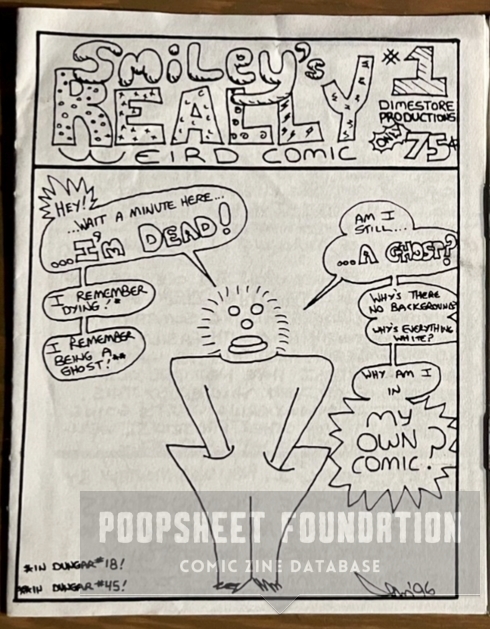 SMiLEY's
REALLY
WEIRD COMIC
#1
DIMESTORE
PRODUCTIONS
ONLY
75¢
HEY!
...WAIT A MINUTE HERE...
...I'M DEAD!
I REMEMBER
DYING!*
I REMEMBER
BEING A
GHOST!**
AM I
STILL...
...A GHOST?
WHY'S THERE
NO BACKGROUND?
WHY'S EVERYTHING
WHITE?
WHY AM I
IN
MY
OWN
COMIC?
*IN DUNGAR #18!
**IN DUNGAR #45!
'96
POOPSHEET FOUNDATION
COMIC ZINE DATABASE